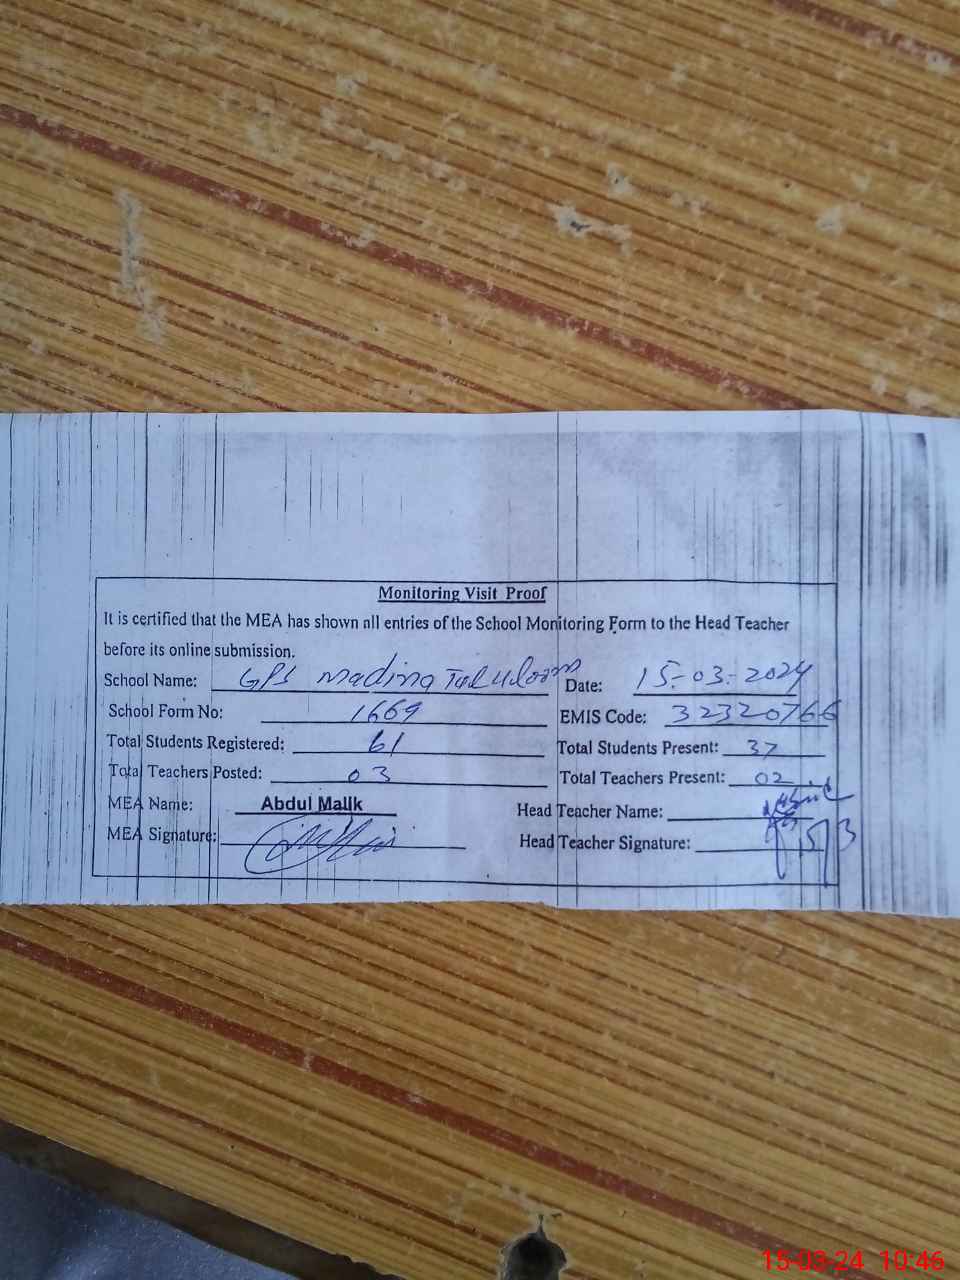 Monitoring Visit Proof
It is certified that the MEA has shown all entries of the School Monitoring Form to the Head Teacher
before its online submission.
School Name: GPS Madina Date: 15-03-2024
School Form No: 1669 EMIS Code: 32320766
Total Students Registered: 61 Total Students Present: 37
Total Teachers Posted: 03 Total Teachers Present: 02
MEA Name: Abdul Malik Head Teacher Name:
MEA Signature: Head Teacher Signature:
15-03-24 10:46